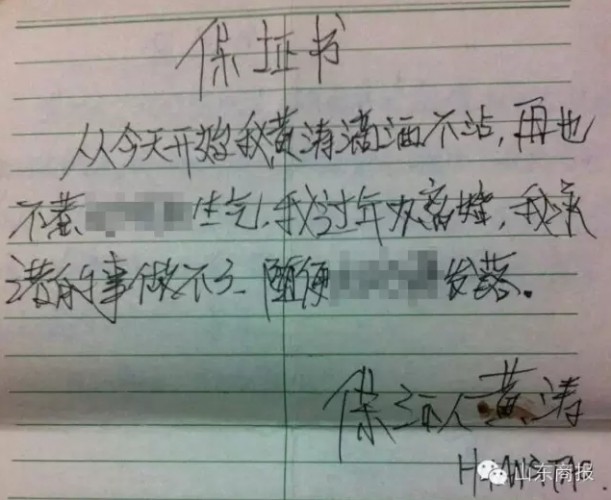 保证书
从今天开始我黄涛滴酒不沾,再也
不惹 生气,我过年办离婚,我承
诺的事做不了 随便 发落。
保证人黄涛
山东商报